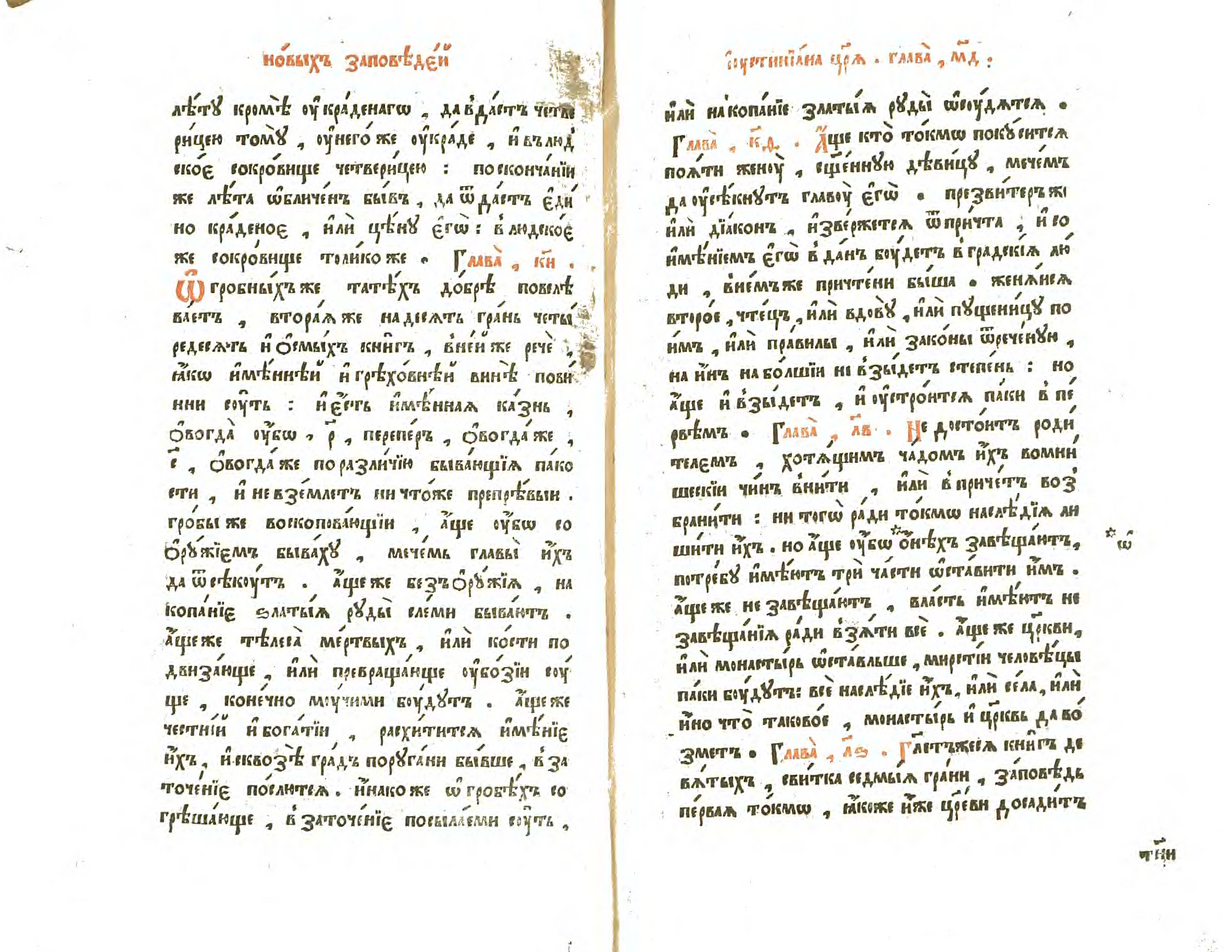 но́выхъ за́повѣдєй
лѣ́тꙋ кромѣ̀ ᲂу҆кра́денагѡ , да в̾да́стъ четве
ри́цею томꙋ̀ , ᲂу҆него́ же ᲂу҆кра́де , и҆ въ лю́д
ское сокро́вище четвери́цею : по сконча́нїи
же лѣ́та ѡ҆бличе́нъ бы́въ , да ѿда́стъ є҆ди
но кра́деное , и҆лѝ цѣ́нꙋ є҆гѡ̀ : в людско́е
же сокро́вище толи́ко же . Глава̀ , к҃и .
Ѿ гро́бныхъ же та́тѣхъ до́брѣ повелѣ
ва́етъ , втора́ѧ же на́десѧть гра́нь четы́
редесѧть и҆ ѻ҆смы́хъ кни́гъ , в не́й же речѐ ,
ꙗ҆́кѡ и҆мѣ́ннѣй и҆ грѣхо́внѣй винѣ̀ пови́
нни сꙋ́ть : и҆ є҆́сть и҆мѣ́ннаѧ ка́знь ,
ѻ҆вогда̀ ᲂу҆́бѡ , р҃ , перпе́ръ , ѻ҆вогда́ же ,
с҃ , ѻ҆вогда́ же по разли́чїю быва́ющїѧ па́ко
сти , и҆ не в̾зе́млетъ ничто́же препрѣ́выи .
гро́бы же воскопова́ющїи , а҆́ще ᲂу҆́бѡ со
ѻ҆рꙋ́жїемъ быва́хꙋ , мече́мь главы̀ и҆́хъ
да ѿсѣкꙋ́тъ . а҆́ще же безъ ѻ҆рꙋ́жїѧ , на
копа́нїе ꙁлаты́ѧ рꙋды̀ сле́ми быва́ютъ .
а҆́ще же тѣлеса̀ ме́ртвыхъ , и҆лѝ ко́сти по
двиза́юще , и҆лѝ превраща́юще ᲂу҆бо́зїи сꙋ́
ще , коне́чно мꙋ́чими бꙋ́дꙋтъ . а҆́ще же
честні́й и҆ бога́тїи , расхи́титсѧ и҆мѣ́нїе
и҆́хъ , и҆ сквозѣ̀ гра́дъ порꙋ́гани бы́вше , в̾ за
точе́нїе по́слютсѧ . и҆́нако же ѡ҆ гробѣ́хъ со
грѣша́юще , в̾ заточе́нїе посыла́еми сꙋ́ть ,
І҆ᲂустинїа́на цр҃ѧ . глава̀ , м҃д .
и҆лѝ на копа́нїе златы́ѧ рꙋды̀ ѡ҆сꙋ́дѧтсѧ .
Глава̀ , к҃д . А҆́ще кто̀ то́кмѡ покꙋси́тсѧ
поѧ́ти женꙋ̀ , сщ҃е́ннꙋю дѣ́вицꙋ , мече́мъ
да ᲂу҆сѣкнꙋ́тъ главꙋ̀ є҆гѡ̀ . презви́теръ же
и҆лѝ дїа́конъ , и҆зве́ржетсѧ ѿ при́чта , и҆ со
и҆мѣ́нїемъ є҆гѡ̀ в̾да́нъ бꙋ́детъ в̾ гра́дскїѧ лю́
ди , в̾ ни́мъ же причте́ни бы́ша . женѧ́исѧ
второ́е , чте́цъ , и҆лѝ вдовꙋ̀ , и҆лѝ пꙋщени́цꙋ по
и҆́мъ , и҆лѝ пра́вилы , и҆лѝ зако́ны ѿрече́ннꙋю ,
на и҆́нъ на бо́лшїи не в̾зы́детъ сте́пень : но
а҆́ще и҆ в̾зы́детъ , и҆ ᲂу҆стро́итсѧ па́ки в̾ пе́
рвѣмъ . Глава̀ , л҃в . Не досто́итъ роди́
телемъ , хотѧ́щимъ ча́домъ и҆́хъ во мни́
шескїи чи́нъ вни́ти , и҆лѝ в̾ при́четъ воз̾
брани́ти : ни того̀ ра́ди то́кмѡ наслѣ́дїѧ ли
ши́ти и҆́хъ . но а҆́ще ᲂу҆́бѡ *ѻ҆́нѣхъ завѣща́ютъ ,
потре́бꙋ и҆́мꙋтъ трѝ ча́сти ѡ҆ста́вити и҆́мъ .
а҆́ще же не завѣща́ютъ , вла́сть и҆́мꙋтъ не
завѣща́нїѧ ра́ди в̾зѧ́ти всѐ . а҆́ще же цр҃кви ,
и҆лѝ монасты́рь ѡ҆ста́вльше , ми́рстїи человѣ́цы
па́ки бꙋ́дꙋтъ : всѐ наслѣ́дїе и҆́хъ , и҆лѝ се́ла , и҆лѝ
и҆́но что̀ таково́е , монасты́рь и҆ цр҃ковь да во́
зметъ . Глава̀ , л҃ѕ . Гл҃етъ же сѧ кни́гъ де
вѧ́тыхъ , сви́тка седмы́ѧ гра́ни , за́повѣдь
пе́рваѧ то́кмѡ , ꙗ҆́коже и҆́же цр҃е́ви досади́тъ
* ѡ҆